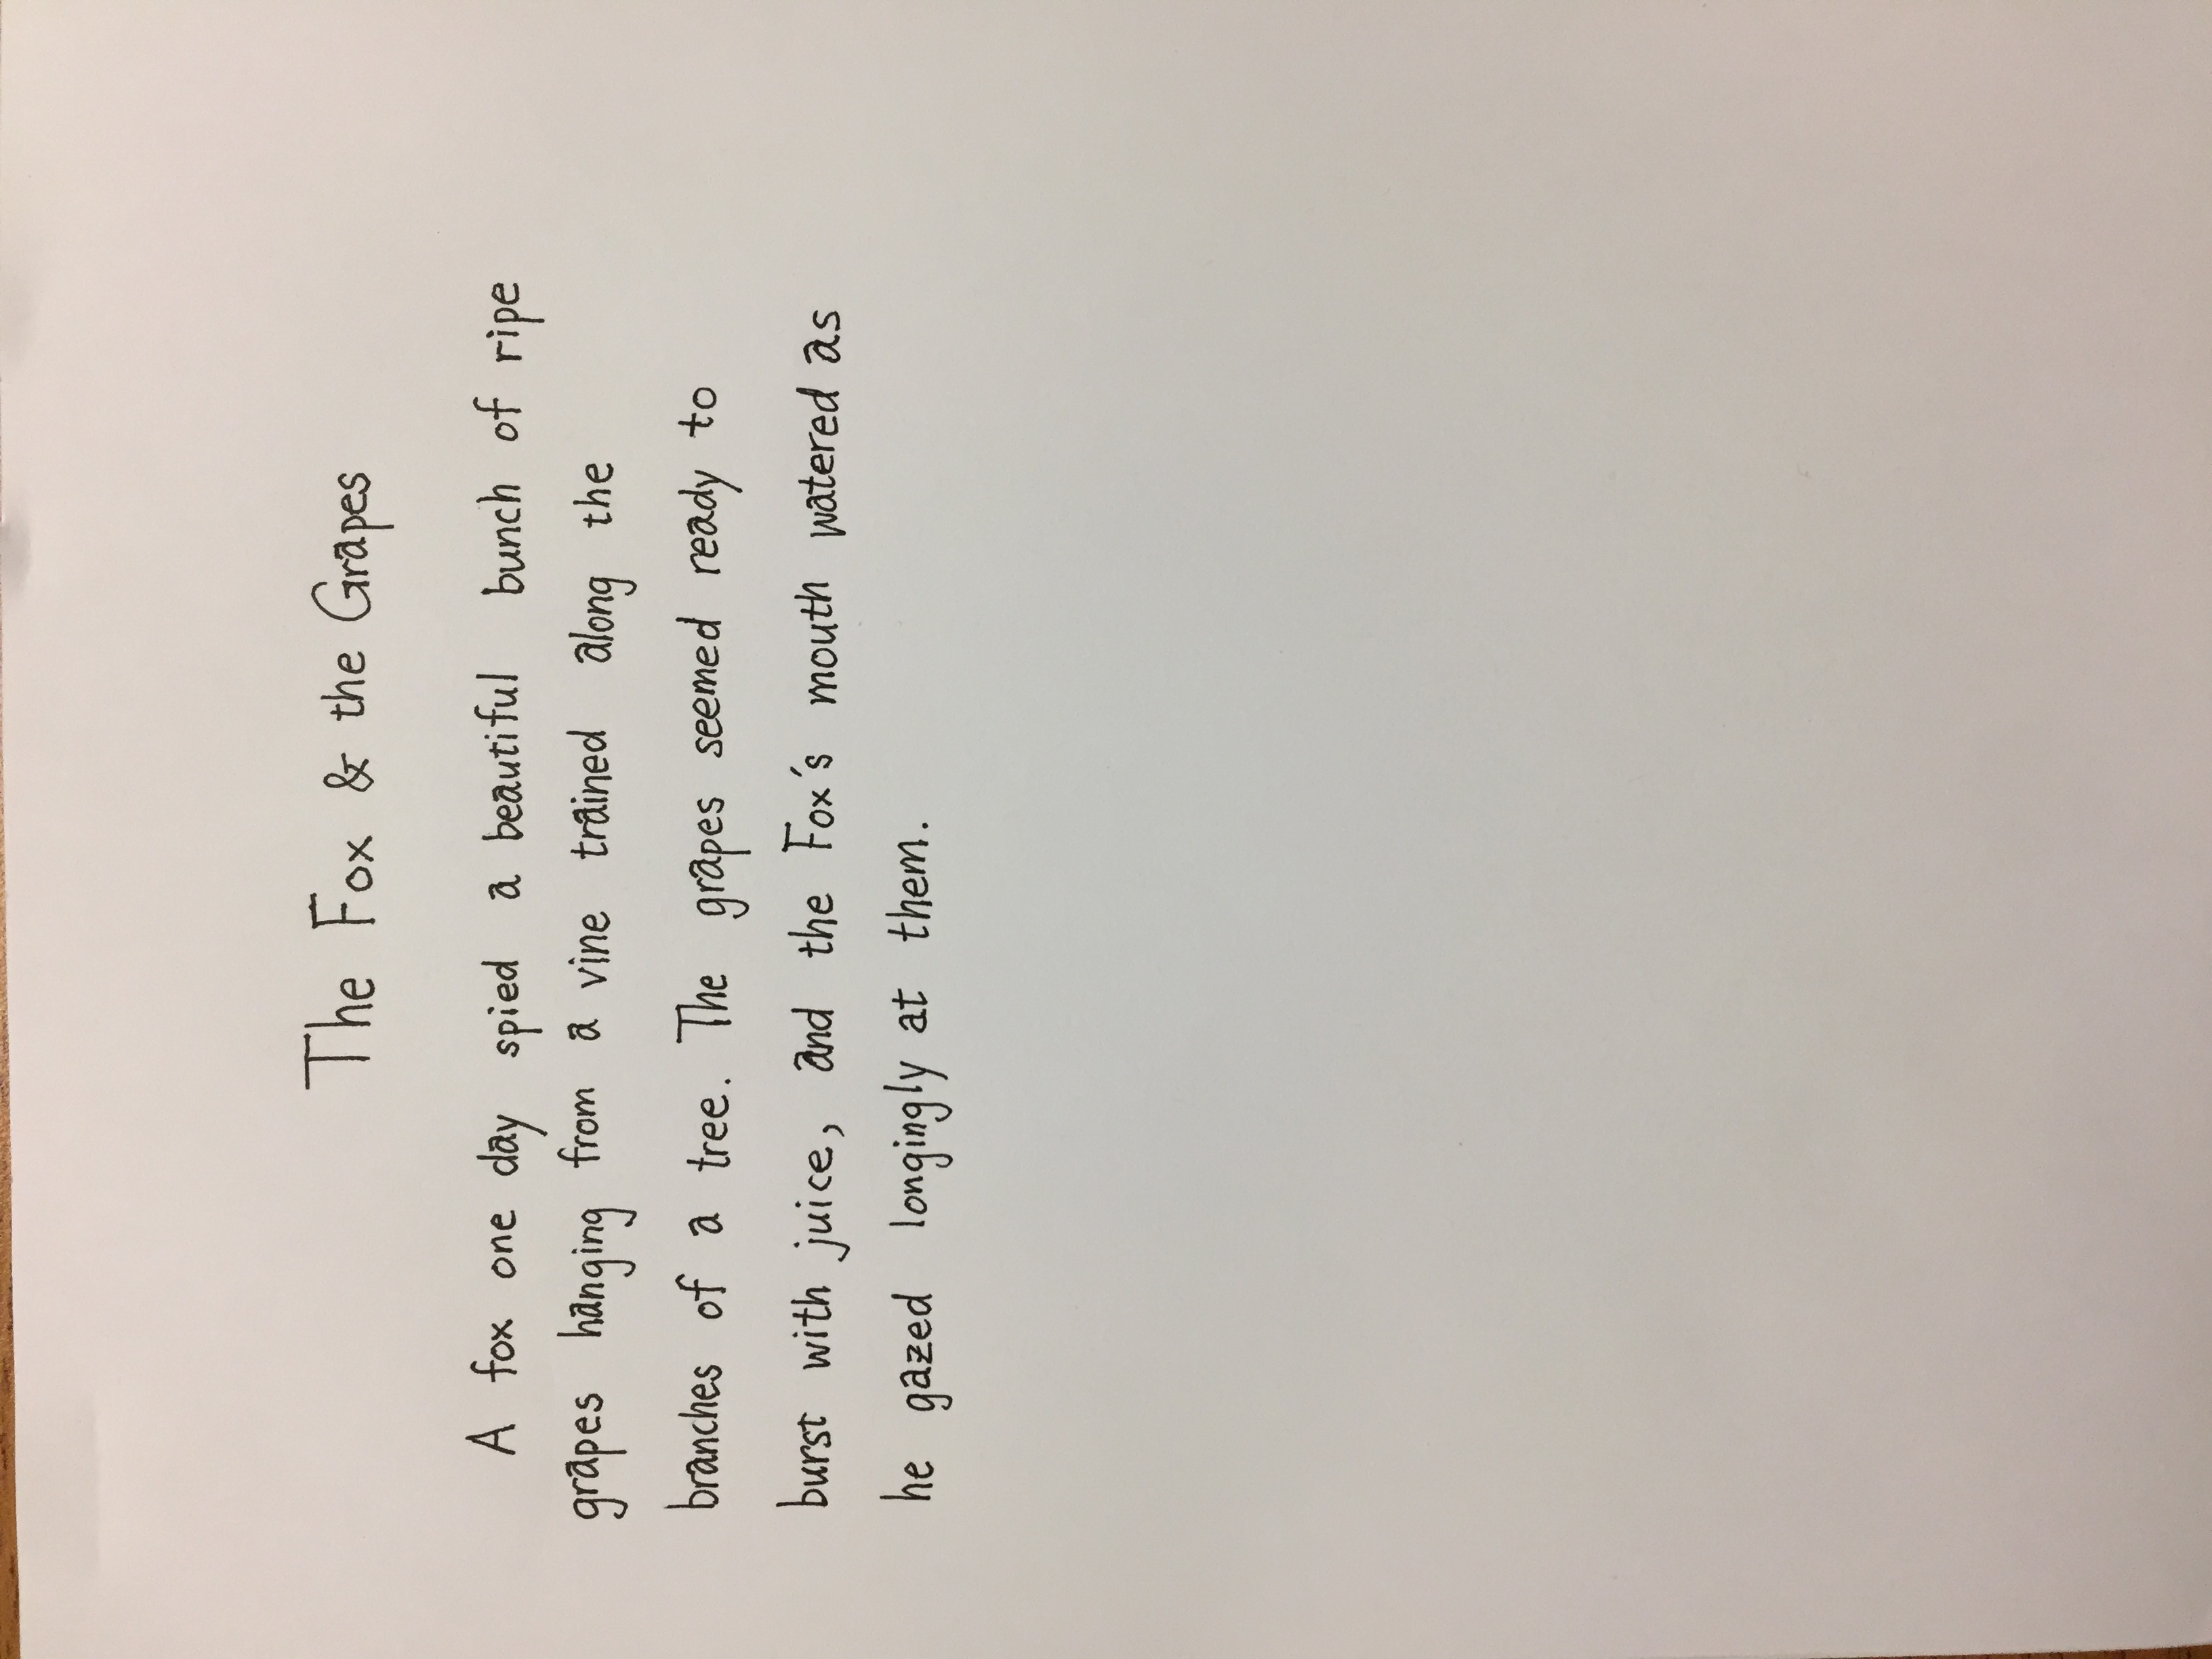 The Fox & the Grapes
A fox one day spied a beautiful bunch of ripe
grapes hanging from a vine trained along the
branches of a tree. The grapes seemed ready to
burst with juice, and the Fox's mouth watered as
he gazed longingly at them.